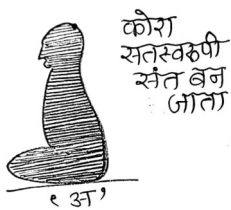 कोरा
सतस्वरुपी
संत बन
जाता
‘अ’